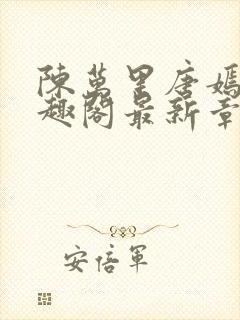 陳萬里唐嫣
趣閣最新章
安倍軍